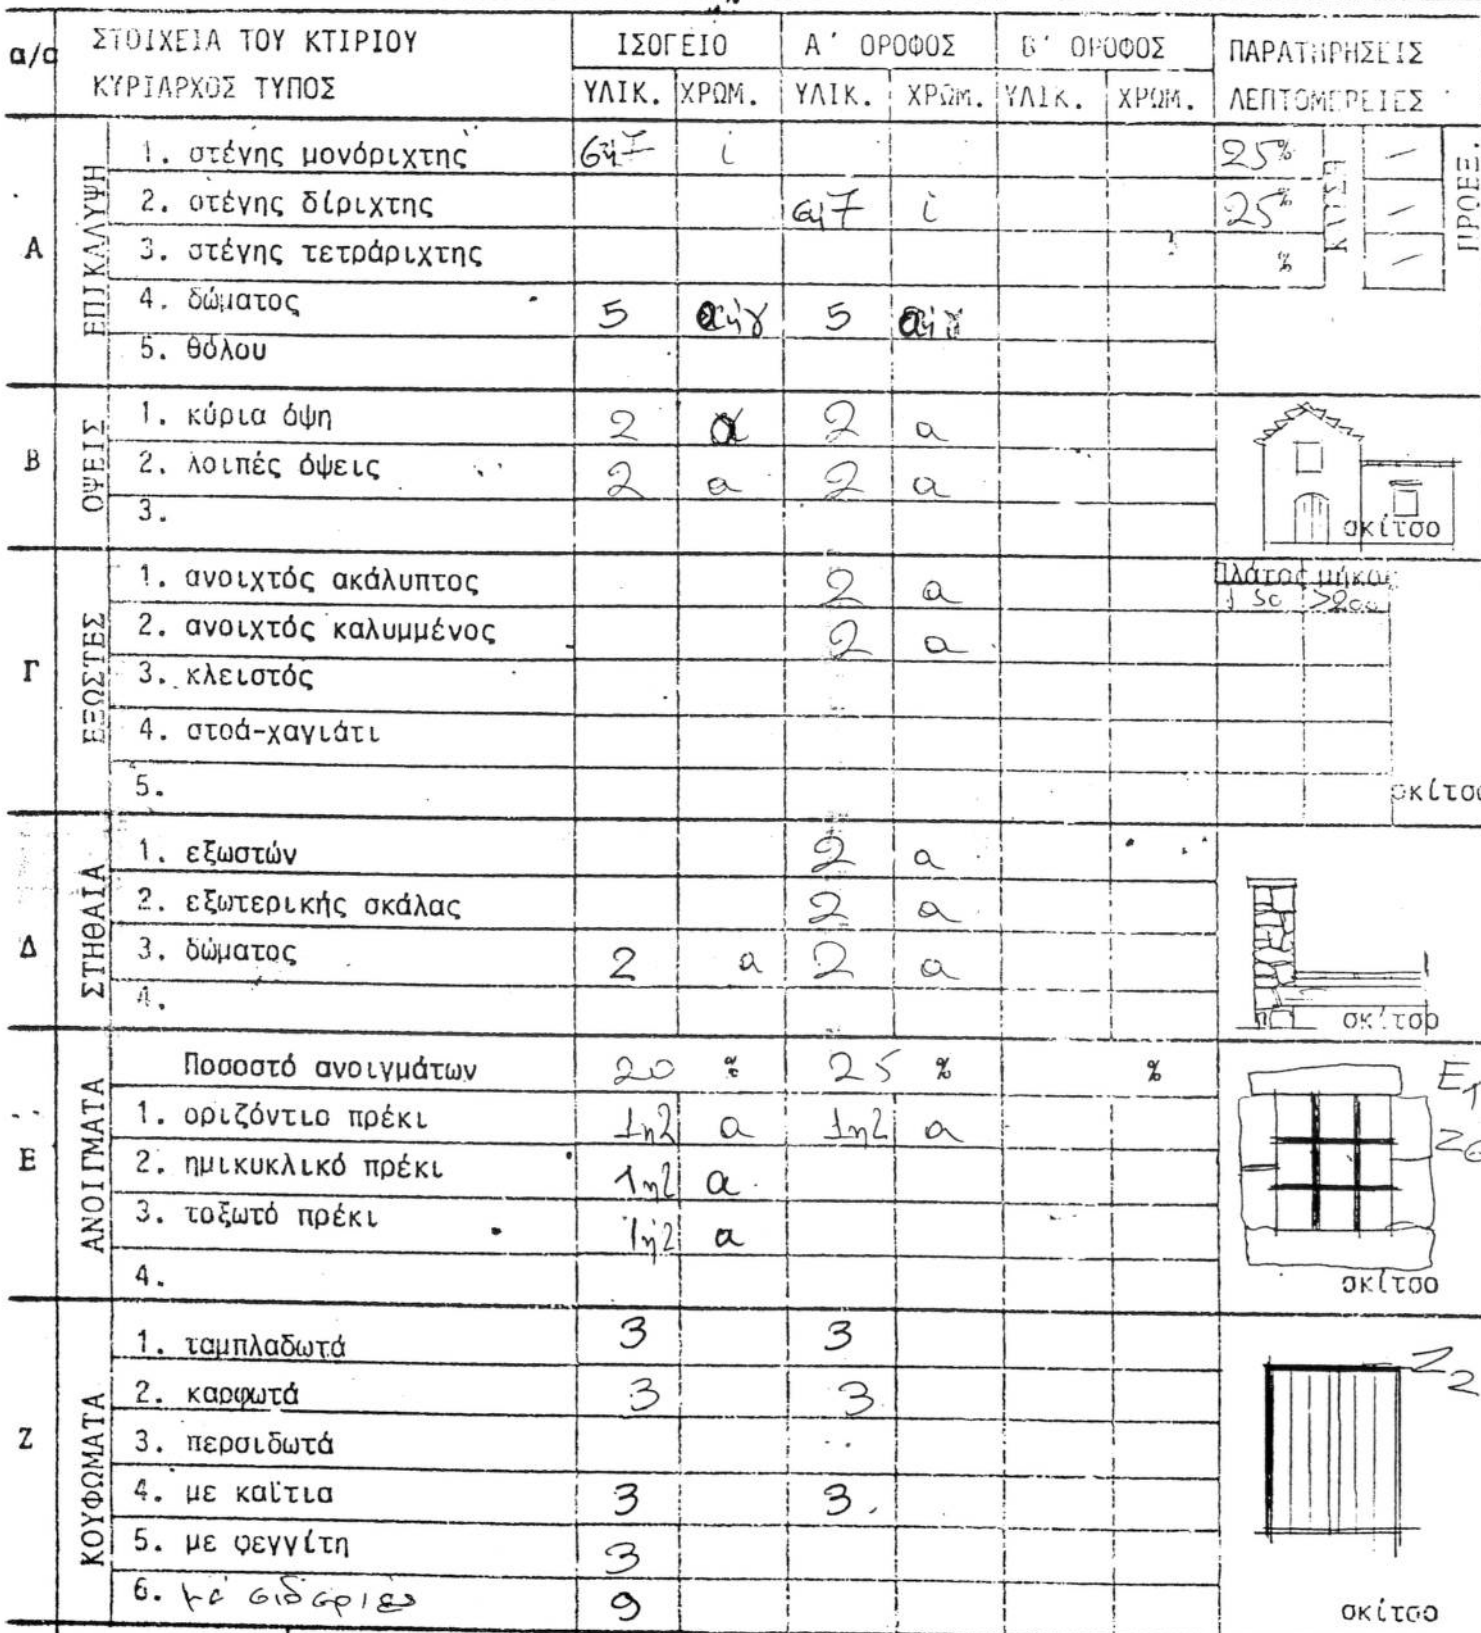 α/α ΣΤΟΙΧΕΙΑ ΤΟΥ ΚΤΙΡΙΟΥ ΙΣΟΓΕΙΟ Α' ΟΡΟΦΟΣ Β' ΟΡΟΦΟΣ ΠΑΡΑΤΗΡΗΣΕΙΣ
ΚΥΡΙΑΡΧΟΣ ΤΥΠΟΣ ΥΛΙΚ. ΧΡΩΜ. ΥΛΙΚ. ΧΡΩΜ. ΥΛΙΚ. ΧΡΩΜ. ΛΕΠΤΟΜΕΡΕΙΕΣ
Α ΕΠΙΚΑΛΥΨΗ
1. στέγης μονόριχτης 6ή7 i 25% ΚΛΙΣΗ - ΠΡΟΕΞ.
2. στέγης δίριχτης 6ή7 i 25% -
3. στέγης τετράριχτης % -
4. δώματος 5 αήγ 5 αήγ
5. θόλου
Β ΟΨΕΙΣ
1. κύρια όψη 2 α 2 α
2. λοιπές όψεις 2 α 2 α
3. σκίτσο
Γ ΕΞΩΣΤΕΣ
1. ανοιχτός ακάλυπτος 2 α Πλάτος μήκος
2. ανοιχτός καλυμμένος 2 α
3. κλειστός
4. στοά-χαγιάτι
5. σκίτσο
Δ ΣΤΗΘΑΙΑ
1. εξωστών 2 α
2. εξωτερικής σκάλας 2 α
3. δώματος 2 α 2 α
4. σκίτσο
Ε ΑΝΟΙΓΜΑΤΑ
Ποσοστό ανοιγμάτων 20 % 25 % % Ε1
1. οριζόντιο πρέκι 1η2 α 1η2 α Ζ6
2. ημικυκλικό πρέκι 1η2 α
3. τοξωτό πρέκι 1ή2 α
4. σκίτσο
Ζ ΚΟΥΦΩΜΑΤΑ
1. ταμπλαδωτά 3 3 Ζ2
2. καρφωτά 3 3
3. περσιδωτά
4. με καΐτια 3 3
5. με φεγγίτη 3
6. με σιδεριές 9 σκίτσο